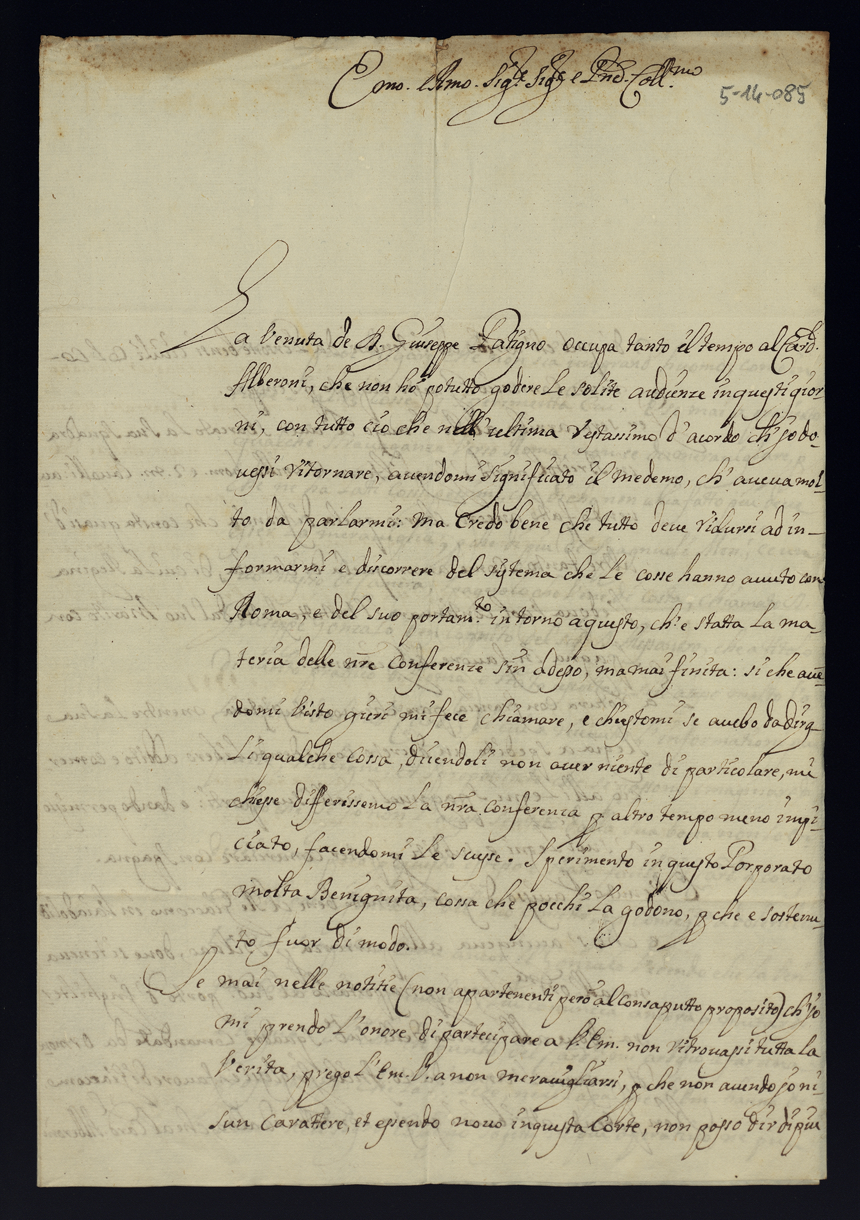 Emo. e Rmo. Sigre. Sigre e Prnd. Coll.mo
5-14-085
La venuta de D. Giuseppe Patigno occupa tanto il tempo al Card.
Alberoni, che non hò potutto godere le solite audienze in questi gior
ni, con tutto ciò che nell' ultima restassimo d' acordo ch' jo do-
vessi ritornare, avendomi significato il medemo, ch' aveva mol-
to da parlarmi: ma credo bene che tutto deve ridursi ad in-
formarmi e discorrere del sytema che le cosse hanno avuto con
Roma, e del suo portam.to intorno a questo, ch' e statta la ma-
teria delle nre Conferenze sin adesso, ma mai finita: si che avē
domi visto gieri mi fece chiamare, e chiestomi se avebo da dirg
li qualche cossa, dicendoli non aver niente di particolare, mi
chiese differissemo la nra conferenza p altro tempo meno impi-
ciato, facendomi le scusse. Sperimento in questo Porporato
molta Benignita, cossa che pocchi la godono, p che e sostenu-
to fuor di modo.
Se mai nelle notitie (non apartenenti però al consaputto proposito) ch' jo
mi prendo l'onore di partecipare a V. Em. non ritrovassi tutta la
Verita, prego l'Em. V. a non meravigliarsi, p che non avendo jo ni-
sun carattere, et essendo novo in questa Corte, non posso dir di piu